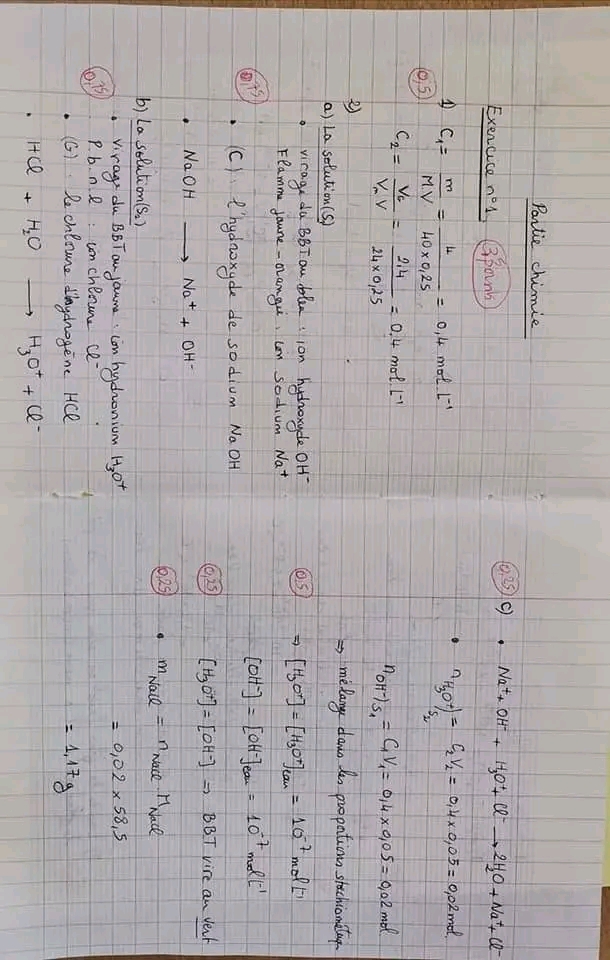 Partie chimie
Exercice n°1
3,5 points
0,5
1) C₁ = m / M.V = 4 / 40×0,25 = 0,4 mol.L⁻¹
C₂ = V₀ / Vₘ.V = 2,4 / 24×0,25 = 0,4 mol.L⁻¹
2)
a) La solution (S₁)
• virage du BBT au bleu : ion hydroxyde OH⁻
Flamme jaune-orangé : ion sodium Na⁺
0,75
• (C) : l'hydroxyde de sodium NaOH
• NaOH ⟶ Na⁺ + OH⁻
b) La solution (S₂)
• virage du BBT au jaune : ion hydronium H₃O⁺
P.b.n.l : ion chlorure Cl⁻
0,75
• (G) : le chlorure d'hydrogène HCl
• HCl + H₂O ⟶ H₃O⁺ + Cl⁻
0,25
c) • Na⁺ + OH⁻ + H₃O⁺ + Cl⁻ ⟶ 2H₂O + Na⁺ + Cl⁻
• nH₃O⁺)S₂ = C₂V₂ = 0,4×0,05 = 0,02 mol.
nOH⁻)S₁ = C₁V₁ = 0,4×0,05 = 0,02 mol
⇒ mélange dans les proportions
0,5
⇒ [H₃O⁺] = [H₃O⁺]eau = 10⁻⁷ mol L⁻¹
[OH⁻] = [OH⁻]eau = 10⁻⁷ mol L⁻¹
0,25
[H₃O⁺] = [OH⁻] ⇒ BBT vire au vert
0,25
• mNaCl = nNaCl . MNaCl
= 0,02 × 58,5
= 1,17 g